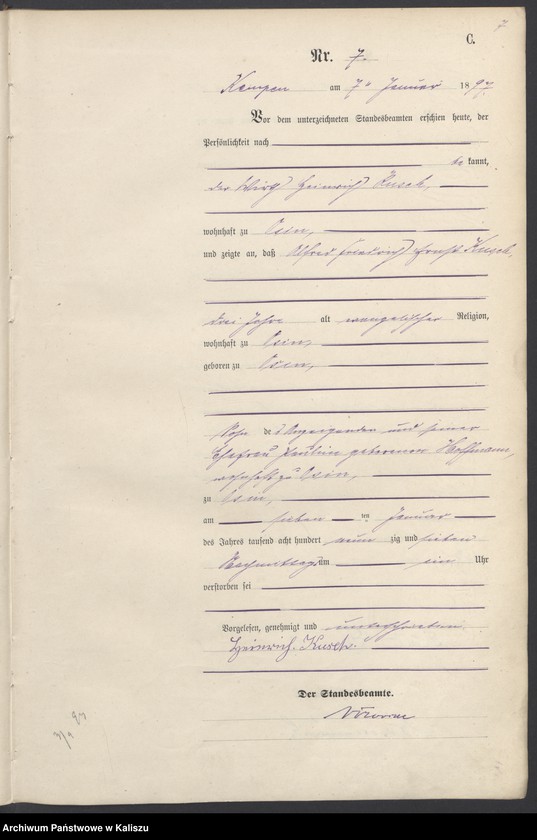 7
C.
Nr. 7.
Kempen am 7ten Januar 1897
Vor dem unterzeichneten Standesbeamten erschien heute, der
Persönlichkeit nach
be kannt,
der Wirth Heinrich Kusch,
wohnhaft zu Osin,
und zeigte an, daß Alfred Friedrich Ernst Kusch,
drei Jahre alt evangelischer Religion,
wohnhaft zu Osin,
geboren zu Osin,
Sohn des Anzeigenden und seiner
Ehefrau Pauline geborenen Hoffmann,
wohnhaft zu Osin,
zu Osin,
am sieben ten Januar
des Jahres tausend acht hundert neun zig und sieben
Nachmittags um ein Uhr
verstorben sei
Vorgelesen, genehmigt und unterschrieben.
Heinrich Kusch.
Der Standesbeamte.
Archiwum Państwowe w Kaliszu